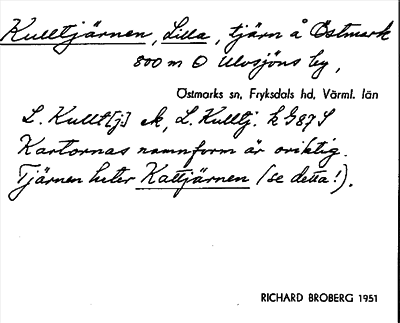 Kulltjärnen, Lilla, tjärn å Östmark
800 m O Ulvsjöns by,
Östmarks sn, Fryksdals hd, Värml. län
L. Kullt[j.] ek, L. Kulltj. k G87 S
Kartornas namnform är oriktig.
Tjärnen heter Kattjärnen (se detta!).
RICHARD BROBERG 1951